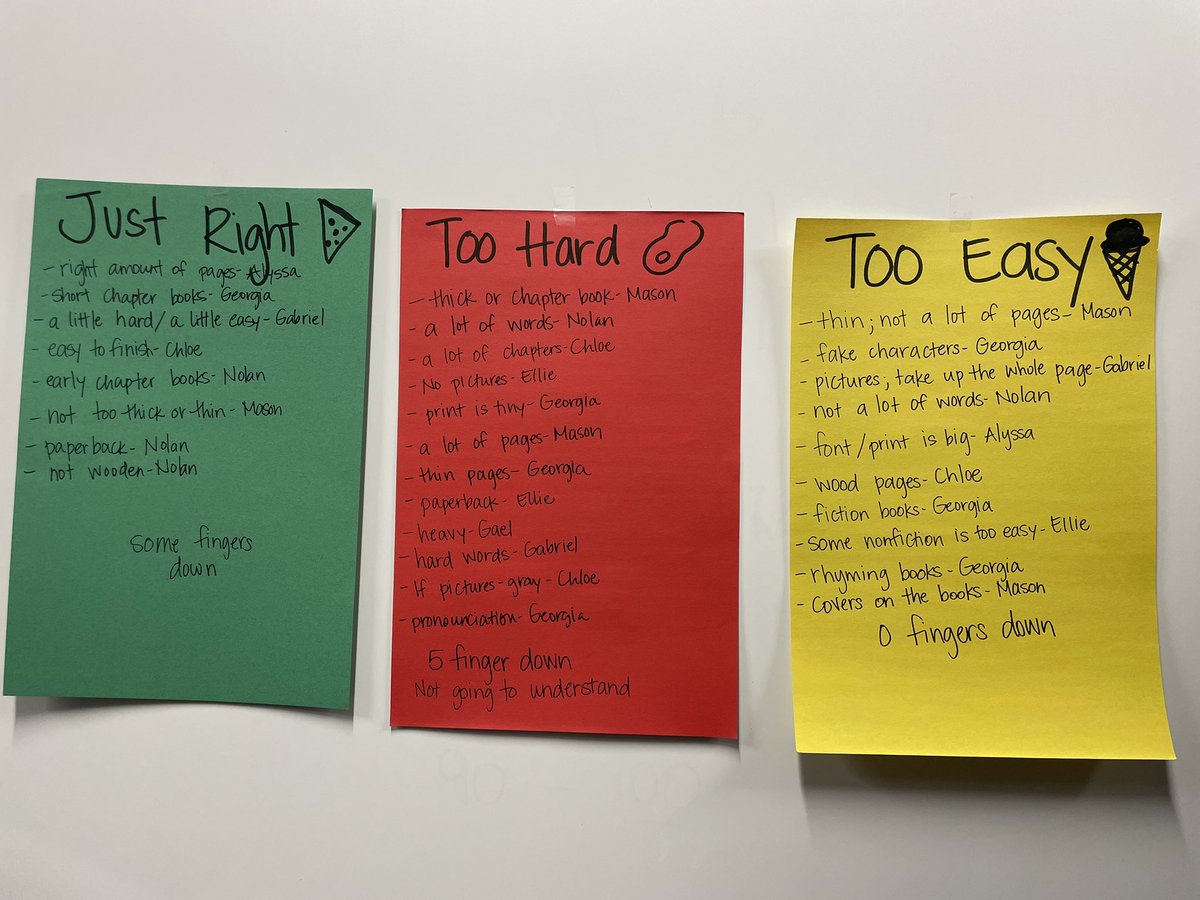 Just Right
- right amount of pages- Alyssa
- short chapter books- Georgia
- a little hard/a little easy- Gabriel
- easy to finish- Chloe
- early chapter books- Nolan
- not too thick or thin- Mason
- paperback- Nolan
- not wooden- Nolan
some fingers
down
Too Hard
- thick or chapter book- Mason
- a lot of words- Nolan
- a lot of chapters- Chloe
- No pictures- Ellie
- print is tiny- Georgia
- a lot of pages- Mason
- thin pages- Georgia
- paperback- Ellie
- heavy- Gael
- hard words- Gabriel
- If pictures- gray- Chloe
- pronounciation- Georgia
5 finger down
Not going to understand
Too Easy
- thin; not a lot of pages- Mason
- fake characters- Georgia
- pictures; take up the whole page- Gabriel
- not a lot of words- Nolan
- font/print is big- Alyssa
- wood pages- Chloe
- fiction books- Georgia
- some nonfiction is too easy- Ellie
- rhyming books- Georgia
- covers on the books- Mason
0 fingers down